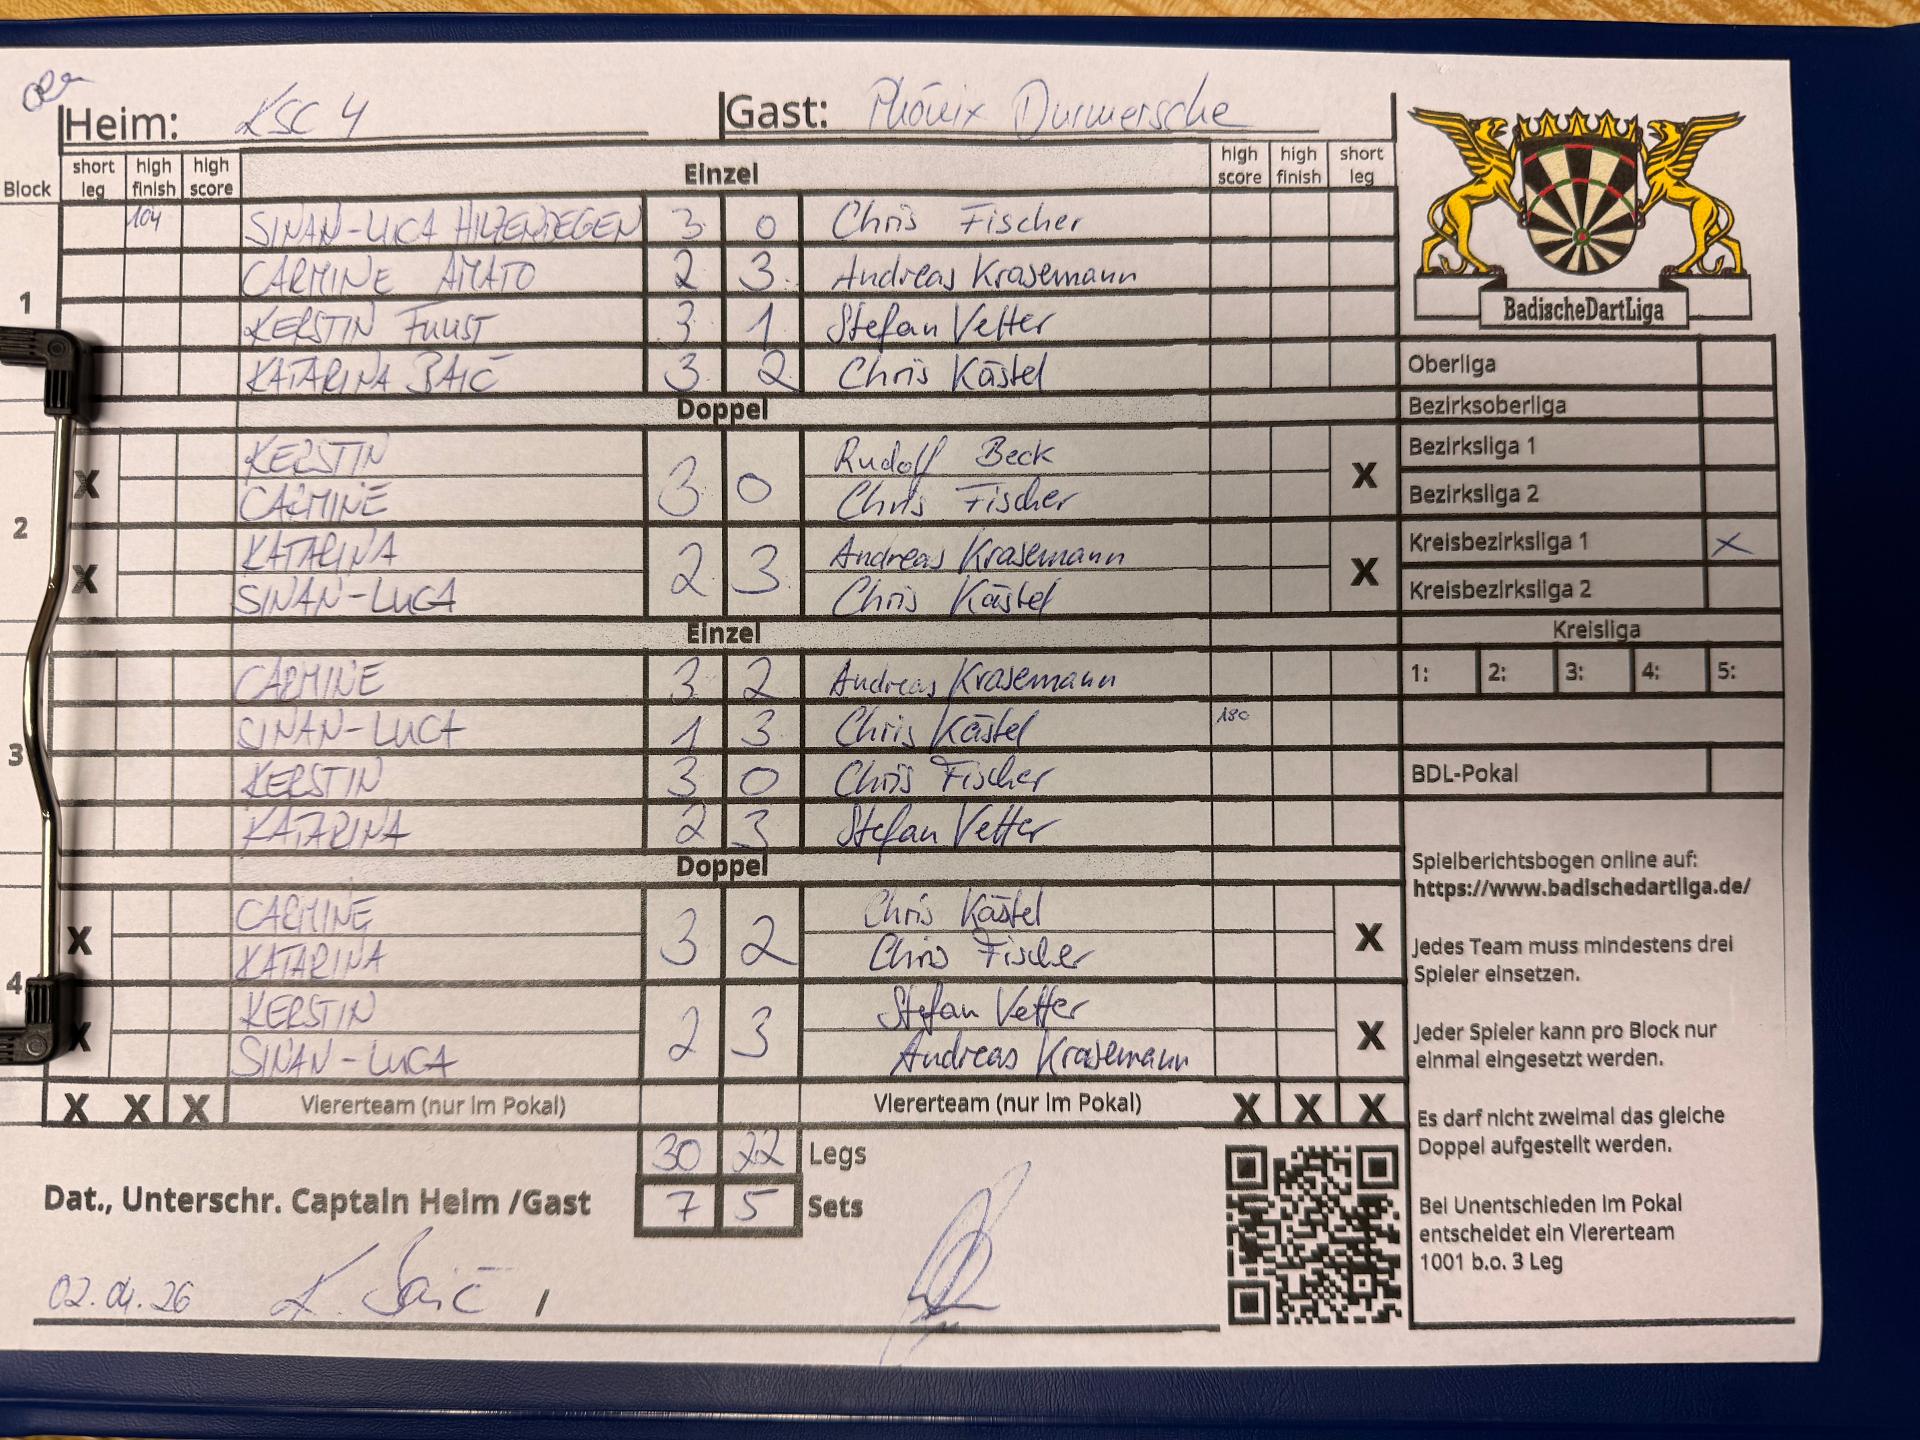 Heim: KSC 4 Gast: Phönix Durmersche
Block short leg high finish high score Einzel high score high finish short leg
1
104 SINAN-LUCA HILZENDEGEN 3 0 Chris Fischer
CARMINE AMATO 2 3 Andreas Krasemann
KERSTIN 3 1 Stefan Vetter
KATARINA BAIĆ 3 2 Chris Kästel
Doppel
2
X KERSTIN 3 0 Rudolf Beck X
CARMINE Chris Fischer
X KATARINA 2 3 Andreas Krasemann X
SINAN-LUCA Chris Kästel
Einzel
3
CARMINE 3 2 Andreas Krasemann
SINAN-LUCA 1 3 Chris Kästel 180
KERSTIN 3 0 Chris Fischer
KATARINA 2 3 Stefan Vetter
Doppel
4
X CARMINE 3 2 Chris Kästel X
KATARINA Chris Fischer
X KERSTIN 2 3 Stefan Vetter X
SINAN-LUCA Andreas Krasemann
X X X Viererteam (nur im Pokal) Viererteam (nur im Pokal) X X X
30 22 Legs
Dat., Unterschr. Captain Heim /Gast 7 5 Sets
02.04.26 K. Baić
BadischeDartLiga
Oberliga
Bezirksoberliga
Bezirksliga 1
Bezirksliga 2
Kreisbezirksliga 1 X
Kreisbezirksliga 2
Kreisliga
1: 2: 3: 4: 5:
BDL-Pokal
Spielberichtsbogen online auf:
https://www.badischedartliga.de/
Jedes Team muss mindestens drei
Spieler einsetzen.
Jeder Spieler kann pro Block nur
einmal eingesetzt werden.
Es darf nicht zweimal das gleiche
Doppel aufgestellt werden.
Bei Unentschieden im Pokal
entscheidet ein Viererteam
1001 b.o. 3 Leg